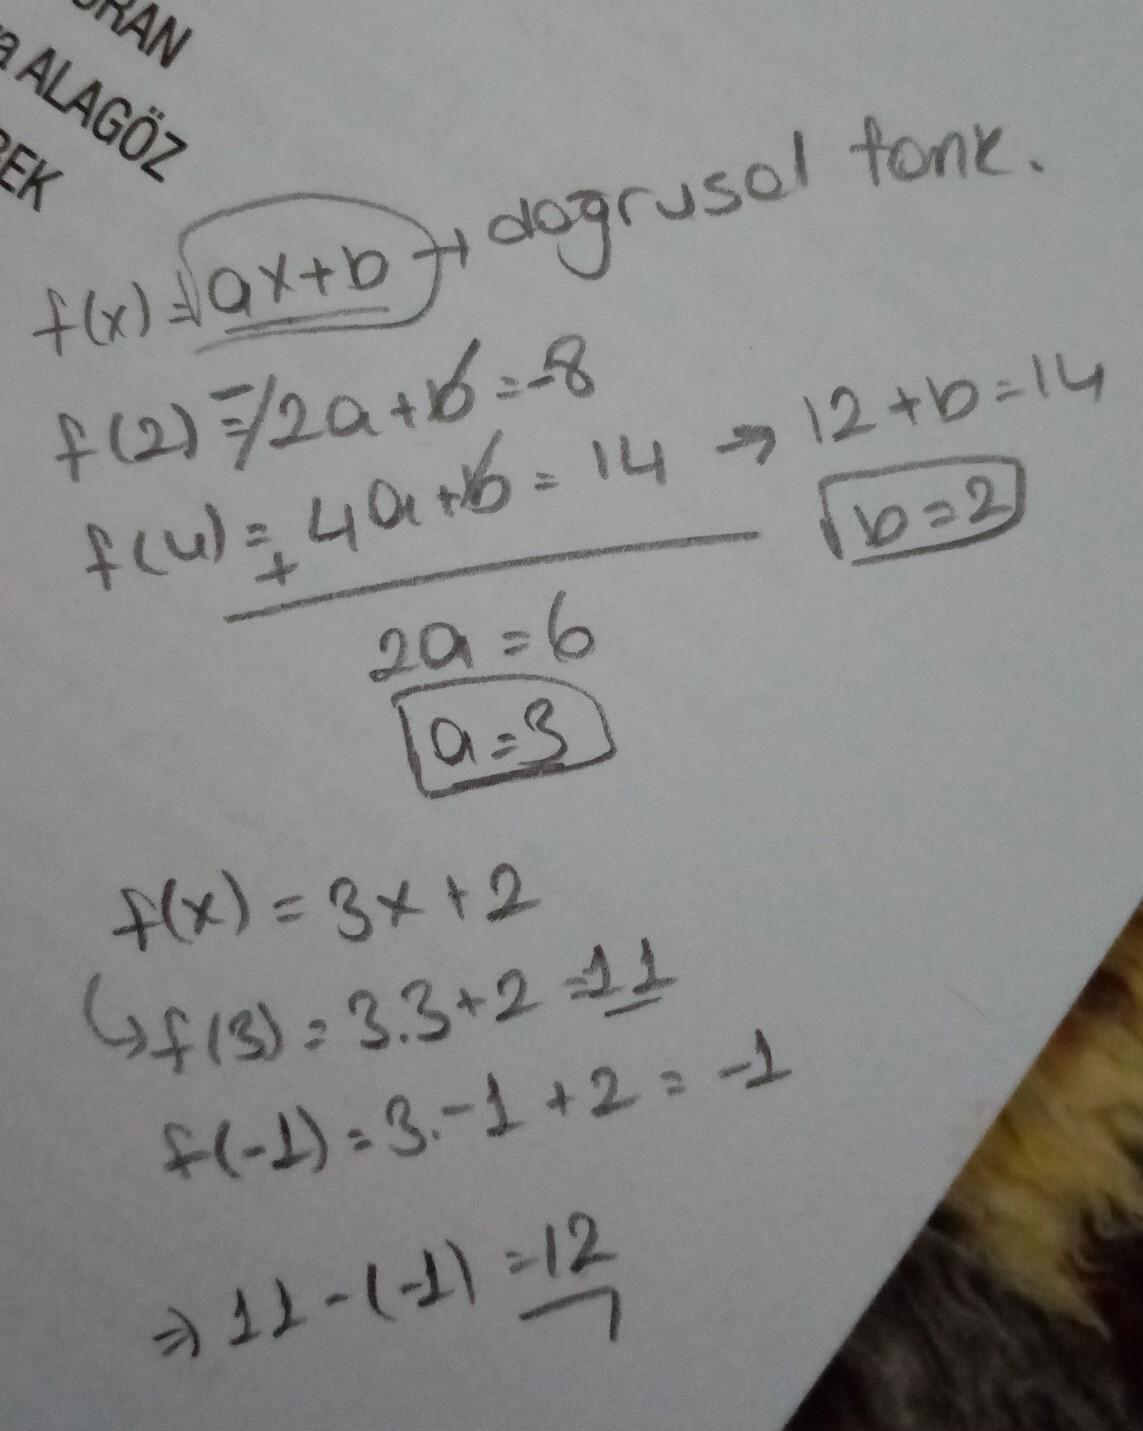 ALAGÖZ
f(x)=ax+b → doğrusal fonk.
f(2) = -/2a+b=-8
f(4) = + 4a+b = 14 → 12+b=14
b=2
2a=6
a=3
f(x)=3x+2
↳f(3)=3.3+2=11
f(-1)=3.-1+2=-1
⇒11-(-1)=12